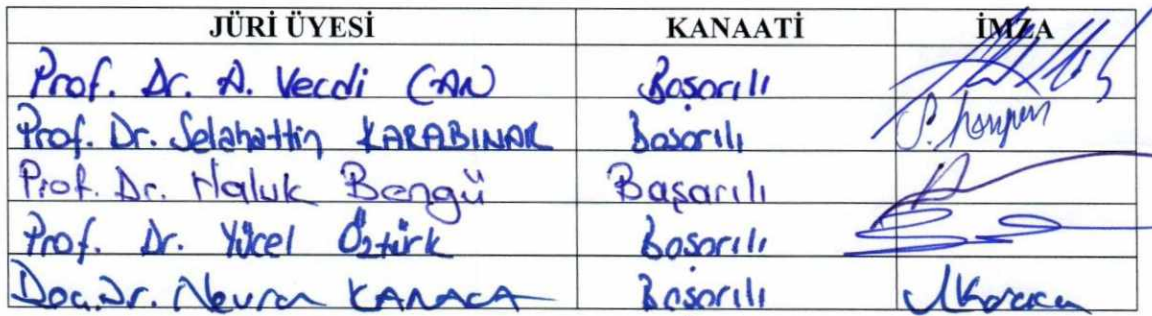 JÜRİ ÜYESİ KANAATİ İMZA
Prof. Dr. A. Vecdi CAN Başarılı
Prof. Dr. Selahattin KARABINAR Başarılı
Prof. Dr. Haluk Bengü Başarılı
Prof. Dr. Yücel Öztürk Başarılı
Doç. Dr. Nevran KARACA Başarılı